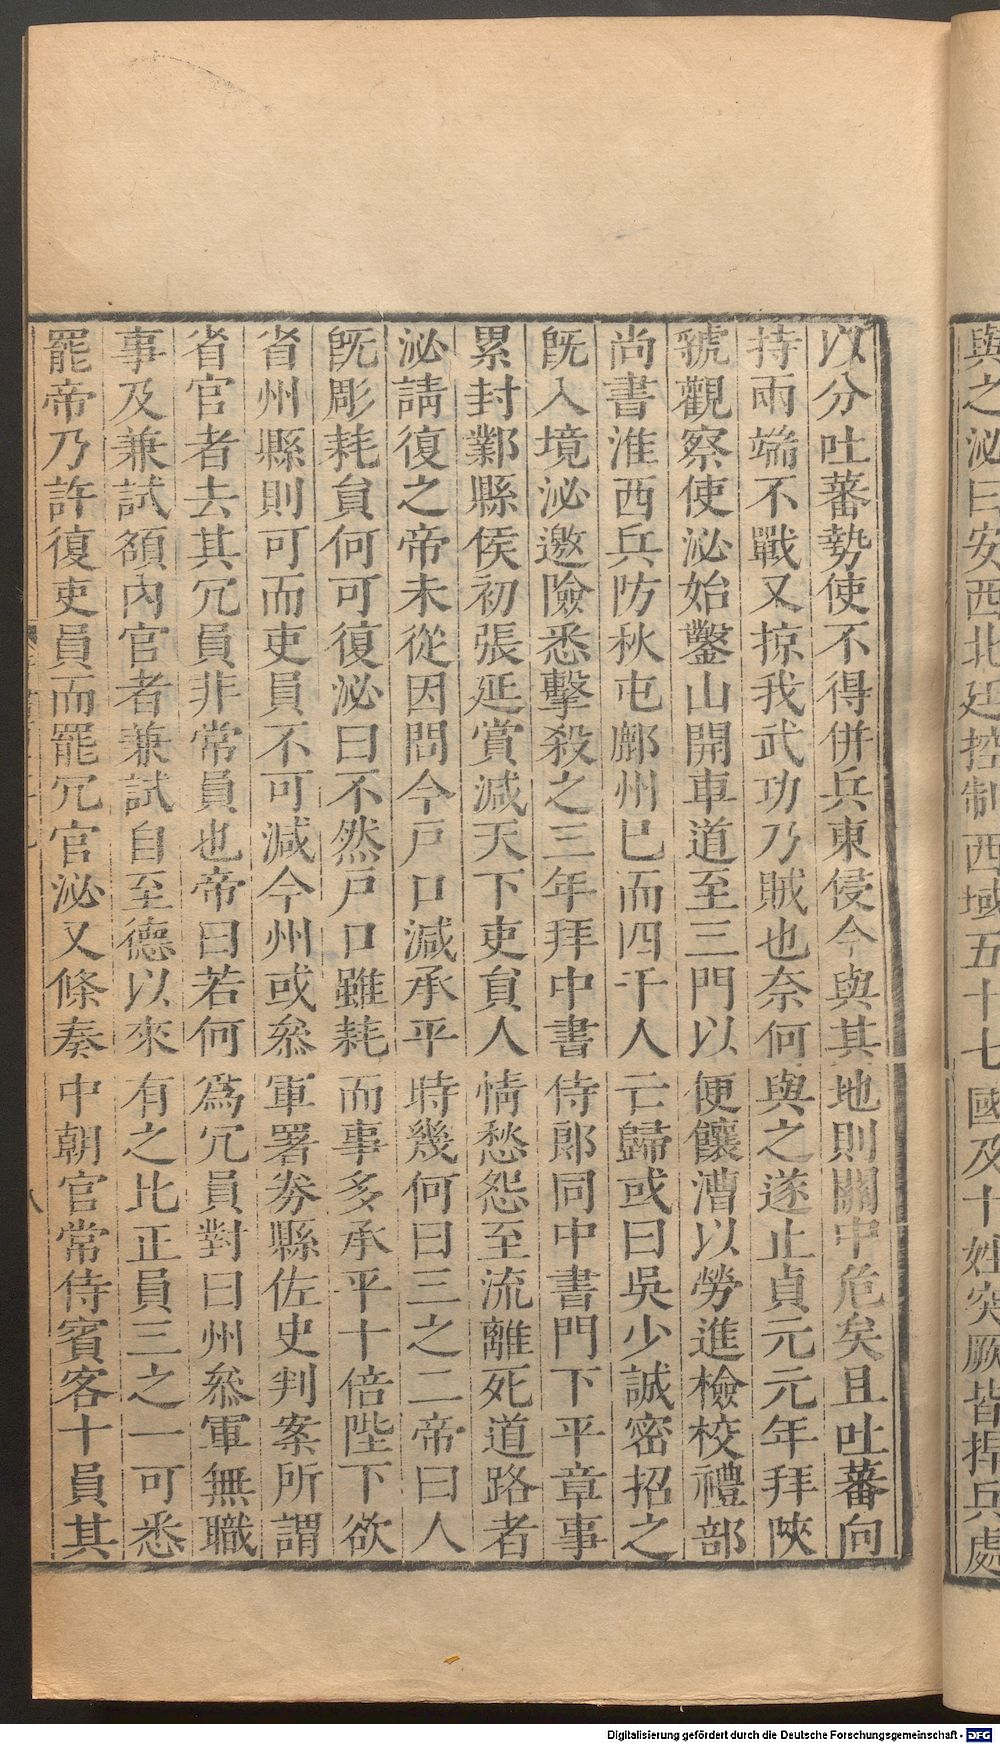 與之泌曰安西北廷控制西域五十七國及十姓突厥皆捍兵處
以分吐蕃勢使不得併兵東侵今與其地則關中危矣且吐蕃向
持兩端不戰又掠我武功乃賊也奈何與之遂止貞元元年拜陝
虢觀察使泌始鑿山開車道至三門以便饟漕以勞進檢校禮部
尚書淮西兵防秋屯鄜州已而四千人亡歸或曰吳少誠密招之
旣入境泌邀險悉擊殺之三年拜中書侍郎同中書門下平章事
累封鄴縣侯初張延賞減天下吏貟人情愁怨至流離死道路者
泌請復之帝未從因問今戸口減承平時幾何曰三之二帝曰人
旣彫耗貟何可復泌曰不然戸口雖耗而事多承平十倍陛下欲
省州縣則可而吏員不可減今州或叅軍署劵縣佐史判案所謂
省官者去其冗員非常員也帝曰若何爲冗員對曰州叅軍無職
事及兼試額內官者兼試自至德以來有之比正員三之一可悉
罷帝乃許復吏員而罷冗官泌又條奏中朝官常侍賓客十員其
八
Digitalisierung gefördert durch die Deutsche Forschungsgemeinschaft - DFG